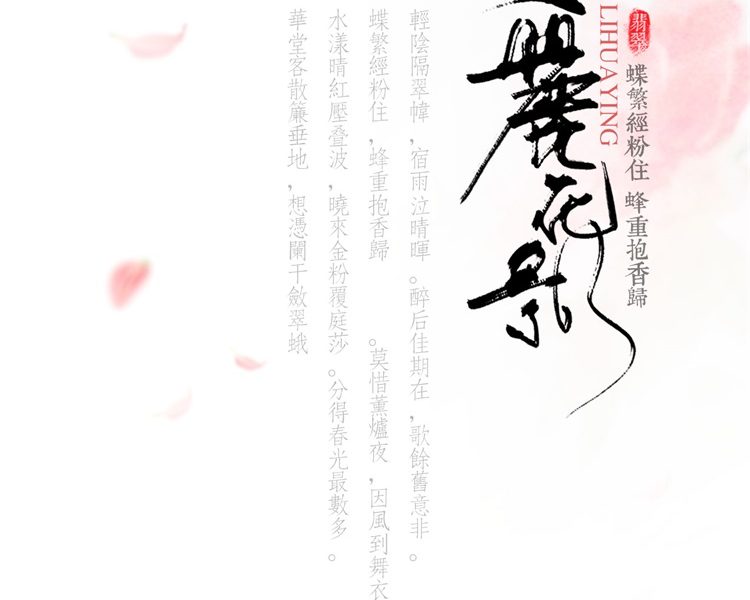 翡翠
蝶繁經粉住 蜂重抱香歸
LIHUAYING
麗花影
輕陰隔翠幃，宿雨泣晴暉。醉后佳期在，歌餘舊意非。
蝶繁經粉住，蜂重抱香歸。莫惜薰爐夜，因風到舞衣
水漾晴紅壓疊波，曉來金粉覆庭莎。分得春光最數多。
華堂客散簾垂地，想憑闌干斂翠蛾